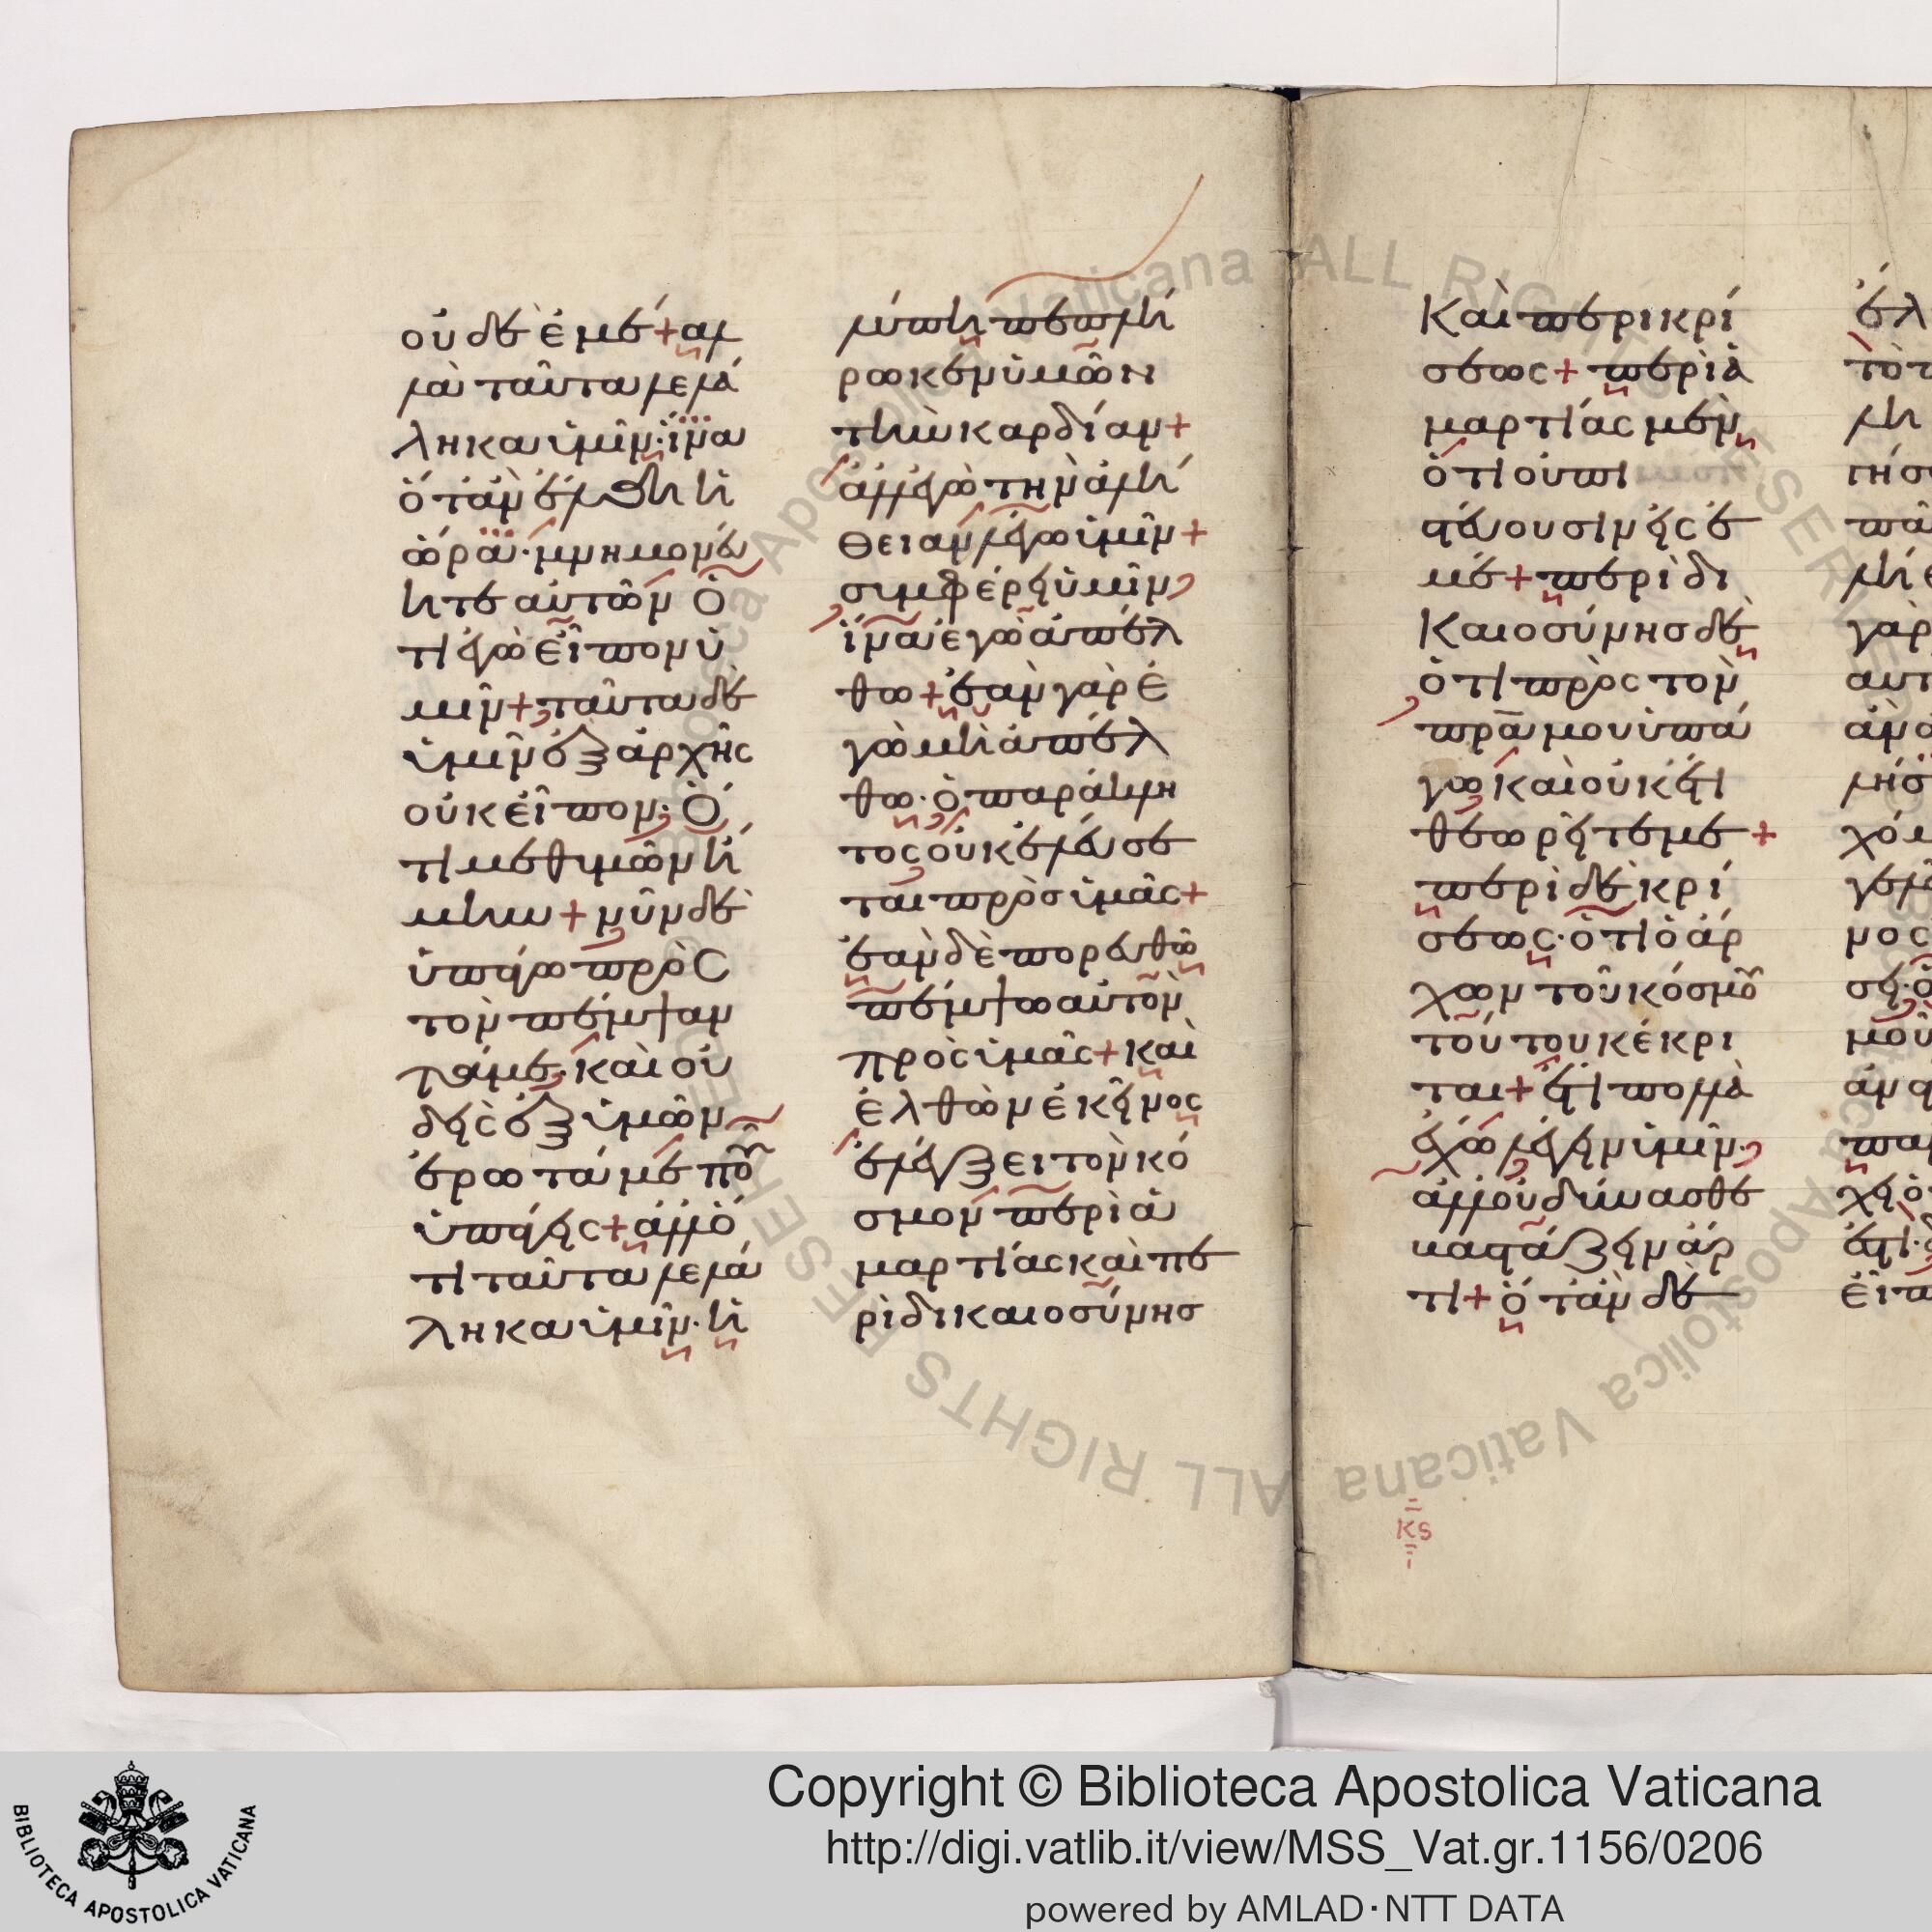 οὐδὲ ἐμέ + ἀλ
λὰ ταῦτα λελά
ληκα ὑμῖν· ἵνα
ὅταν ἔλθη ἡ
ὥρα· μνημονεύ
ητε αὐτῶν ὅ
τι ἐγὼ εἶπον ὑ
μῖν + ταῦτα δὲ
ὑμῖν ἐξ ἀρχῆς
οὐκ εἶπον· ὅ
τι μεθ' ὑμῶν ἤ
μην + νῦν δὲ
ὑπάγω πρὸς
τὸν πέμψαν
τά με· καὶ οὐ
δεὶς ἐξ ὑμῶν
ἐρωτᾶ με ποῦ
ὑπάγεις + ἀλλ' ὅ
τι ταῦτα λελά
ληκα ὑμῖν· ἡ
λύπη πεπλή
ρωκεν ὑμῶν
τὴν καρδίαν +
ἀλλ' ἐγὼ τὴν ἀλή
θειαν λέγω ὑμῖν +
συμφέρει ὑμῖν
ἵνα ἐγὼ ἀπέλ
θω + ἐὰν γὰρ ἐ
γὼ μὴ ἀπέλ
θω· ὁ παράκλη
τος οὐκ ἐλεύσε
ται πρὸς ὑμᾶς +
ἐὰν δὲ πορευθῶ
πέμψω αὐτὸν
πρὸς ὑμᾶς + καὶ
ἐλθὼν ἐκεῖνος
ἐλέγξει τὸν κό
σμον περὶ ἁ
μαρτίας καὶ πε
ρὶ δικαιοσύνησ
Καὶ περὶ κρί
σεως + περὶ ἁ
μαρτίας μὲν
ὅτι οὐ πι
στεύουσιν εἰς ἐ
μέ + περὶ δι
καιοσύνησ δὲ
ὅτι πρὸς τὸν
πρα μου ὑπά
γω καὶ οὐκ ἔτι
θεωρεῖτε με +
περὶ δὲ κρί
σεως· ὅτι ὁ ἄρ
χων τοῦ κόσμου
τούτου κέκρι
ται + ἔτι πολλὰ
ἔχω λέγειν ὑμῖν·
ἀλλ' οὐ δύνασθε
βαστάζειν ἄρ
τι + ὅταν δὲ
ἔλ
γὰρ
κς
Copyright © Biblioteca Apostolica Vaticana
http://digi.vatlib.it/view/MSS_Vat.gr.1156/0206
powered by AMLAD·NTT DATA
BIBLIOTECA APOSTOLICA VATICANA